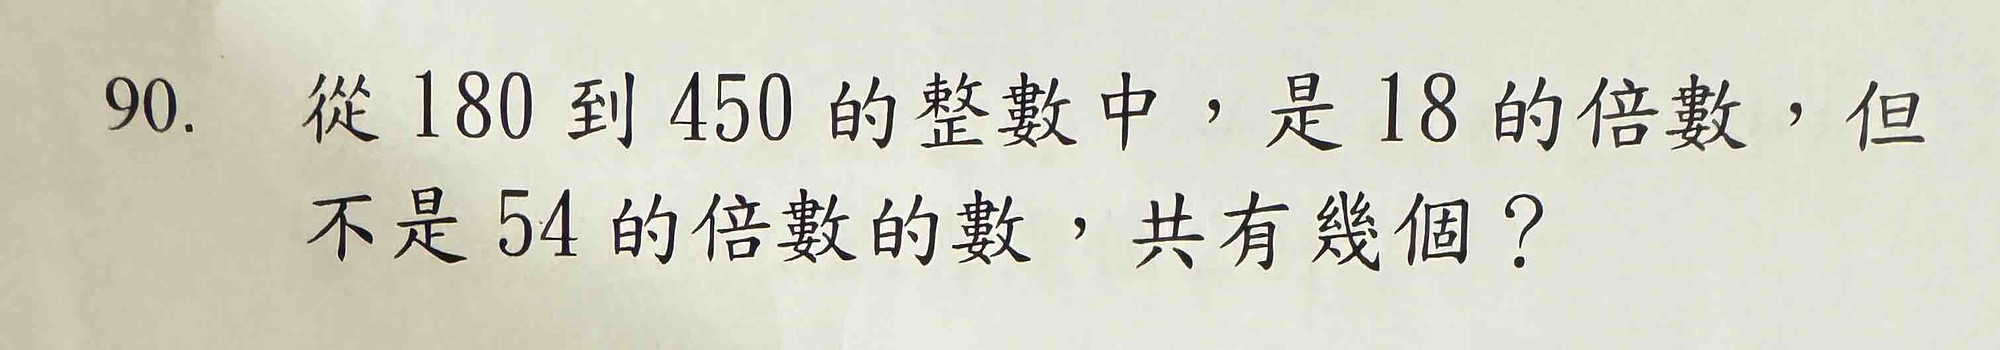 90. 從 180 到 450 的整數中，是 18 的倍數，但
不是 54 的倍數的數，共有幾個？